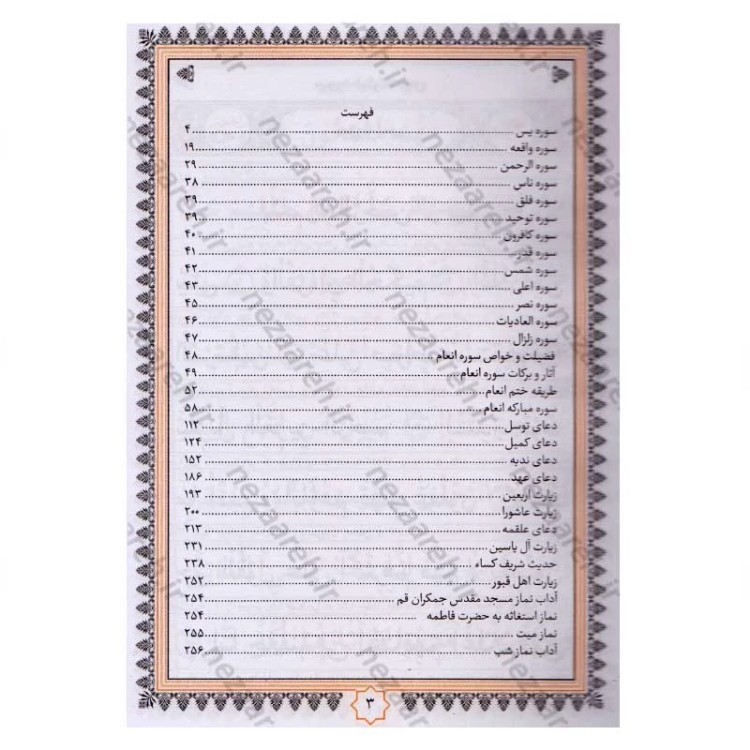 فهرست
سوره یس ................ ۴
سوره واقعه ................ ۱۹
سوره الرحمن ................ ۲۹
سوره ناس ................ ۳۸
سوره فلق ................ ۳۹
سوره توحید ................ ۳۹
سوره کافرون ................ ۴۰
سوره قدر ................ ۴۱
سوره شمس ................ ۴۲
سوره اعلی ................ ۴۳
سوره نصر ................ ۴۵
سوره العادیات ................ ۴۶
سوره زلزال ................ ۴۷
فضیلت و خواص سوره انعام ................ ۴۸
آثار و برکات سوره انعام ................ ۴۹
طریقه ختم انعام ................ ۵۲
سوره مبارکه انعام ................ ۵۸
دعای توسل ................ ۱۱۲
دعای کمیل ................ ۱۲۴
دعای ندبه ................ ۱۵۲
دعای عهد ................ ۱۸۶
زیارت اربعین ................ ۱۹۳
زیارت عاشورا ................ ۲۰۰
دعای علقمه ................ ۲۱۳
زیارت آل یاسین ................ ۲۳۱
حدیث شریف کساء ................ ۲۳۸
زیارت اهل قبور ................ ۲۵۲
آداب نماز مسجد مقدس جمکران قم ................ ۲۵۴
نماز استغاثه به حضرت فاطمه ................ ۲۵۴
نماز میت ................ ۲۵۵
آداب نماز شب ................ ۲۵۶
۳
nezaareh.ir